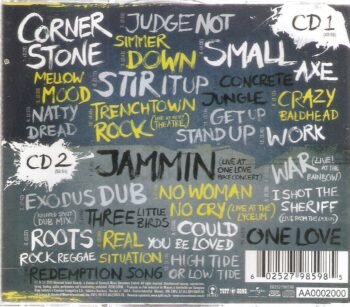 CORNER
STONE
JUDGE NOT
CD 1
SIMMER
DOWN
SMALL
AXE
MELLOW
MOOD
STIR IT UP
CONCRETE
JUNGLE
NATTY
DREAD
TRENCHTOWN
ROCK
THEATRE)
CRAZY
BALDHEAD
GET UP
STAND UP
WORK
CD 2
JAMMIN
(LIVE AT
ONE LOVE
PEACE CONCERT)
WAR
(LIVE!
AT THE
RAINBOW)
EXODUS DUB
DUB MIX)
NO WOMAN
NO CRY
(LIVE AT THE)
LYCEUM
I SHOT THE
SHERIFF
(LIVE FROM THE LYCEUM)
THREE LITTLE
BIRDS
ROOTS
ROCK REGGAE
REAL
SITUATION
COULD
YOU BE LOVED
ONE LOVE
REDEMPTION SONG
HIGH TIDE
OR LOW TIDE
TUFF GONG
ISLAND
6 02527 98598 5
AA0002000